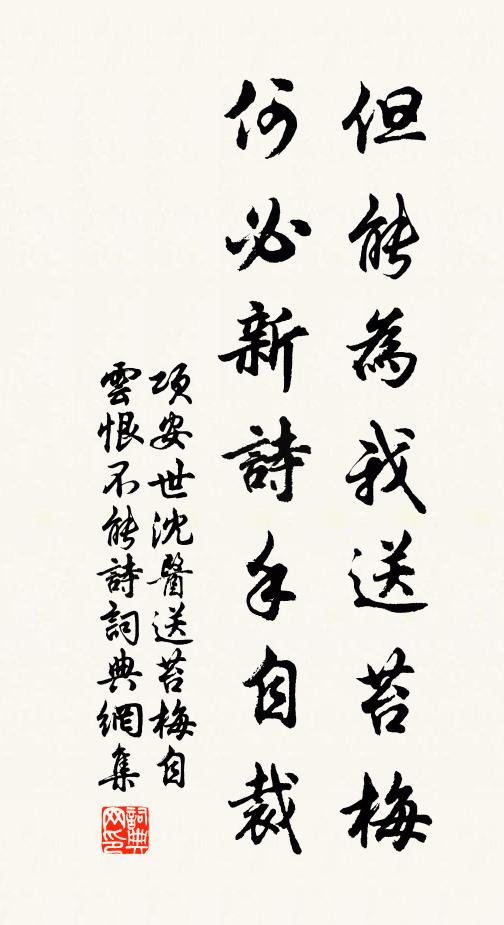 但能為我送苔梅
何必新詩手自裁
項安世沈醫送苔梅自
雲恨不能詩詞典網集
詞典網印